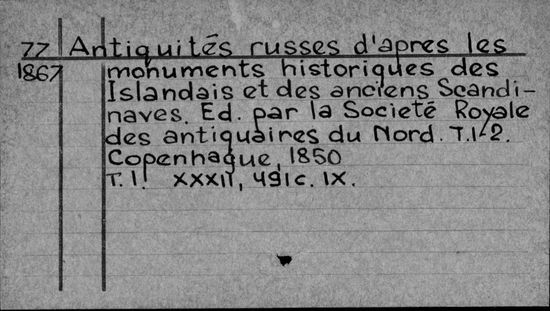 77 Antiquités russes d'apres les
1867 monuments historiques des
Islandais et des anciens Scandi-
naves. Ed. par la Societé Royale
des antiquaires du Nord. T.1-2.
Copenhague, 1850
T.1. XXXII, 491 c. IX.